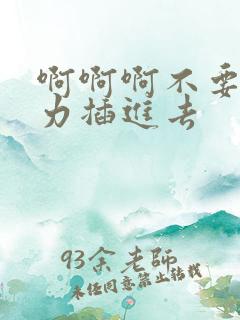 啊啊啊不要
力插進去
93余老師
未经同意禁止转载